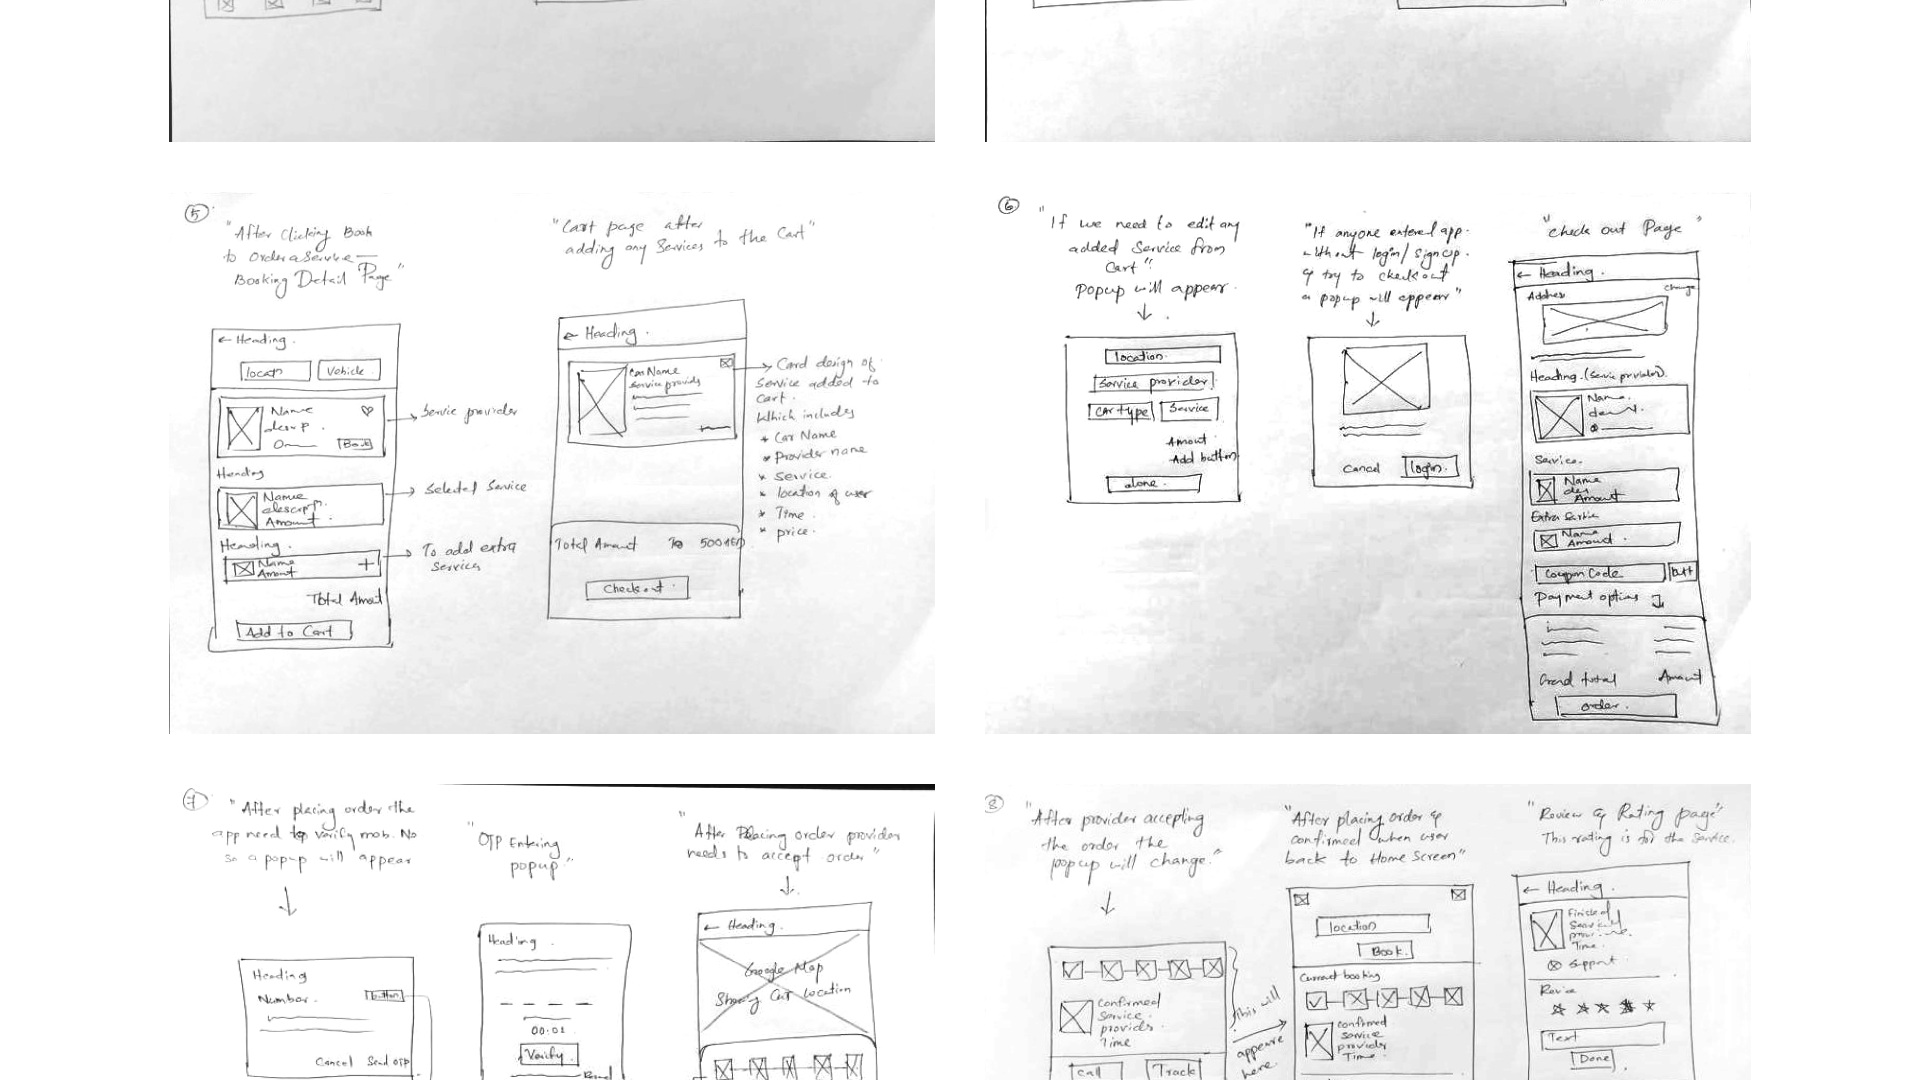 5
"After Clicking Book
to Order a Service —
Booking Detail Page"
← Heading.
Vehicle
Name
descrip.
Book
→ Service provider
Heading
Name
descript.
Amount.
→ Selected Service
Heading.
Name
Amount
+
→ To add extra
Services
Total Amout
Add to Cart
"Cart page after
adding any Services to the Cart"
← Heading.
Car Name
Service provids
→ Card design of
Service added to
Cart.
Which includes
* Car Name
* Provider name
* Service.
* location of user
* Time.
* price.
Total Amount
Checkout
6
"If we need to edit any
added Service from
Cart".
popup will appear.
location
Service provider
Car type
Service
Amout
Add button
done.
"If anyone entered app.
without login/signup.
& try to checkout
a popup will appear"
Cancel
login.
"check out Page"
← Heading.
Address
change
Heading. (Service provider).
Name.
Service.
Name
des
Amount
Extra Service
Name
Amount.
Coupon Code
butt
Payment options
Grand total
Amount
order.
7
"After placing order the
app need to verify mob. No
so a popup will appear
Heading
Number.
button
Cancel
Send OTP
"OTP Entering
popup"
Heading
00:01
Verify
"After Placing order provider
needs to accept order"
← Heading.
Google Map
Showing Car Location
8
"After provider accepting
the order the
popup will change."
Confirmed
Service.
provids.
Time
call
Track
This will
appeare
here
"After placing order &
confirmed when user
back to Home Screen"
location
Book.
Current booking
confirmed
service
provider
Time.
"Review & Rating page"
This rating is for the Service.
← Heading.
Finished
Time.
Support
Review
Text
Done